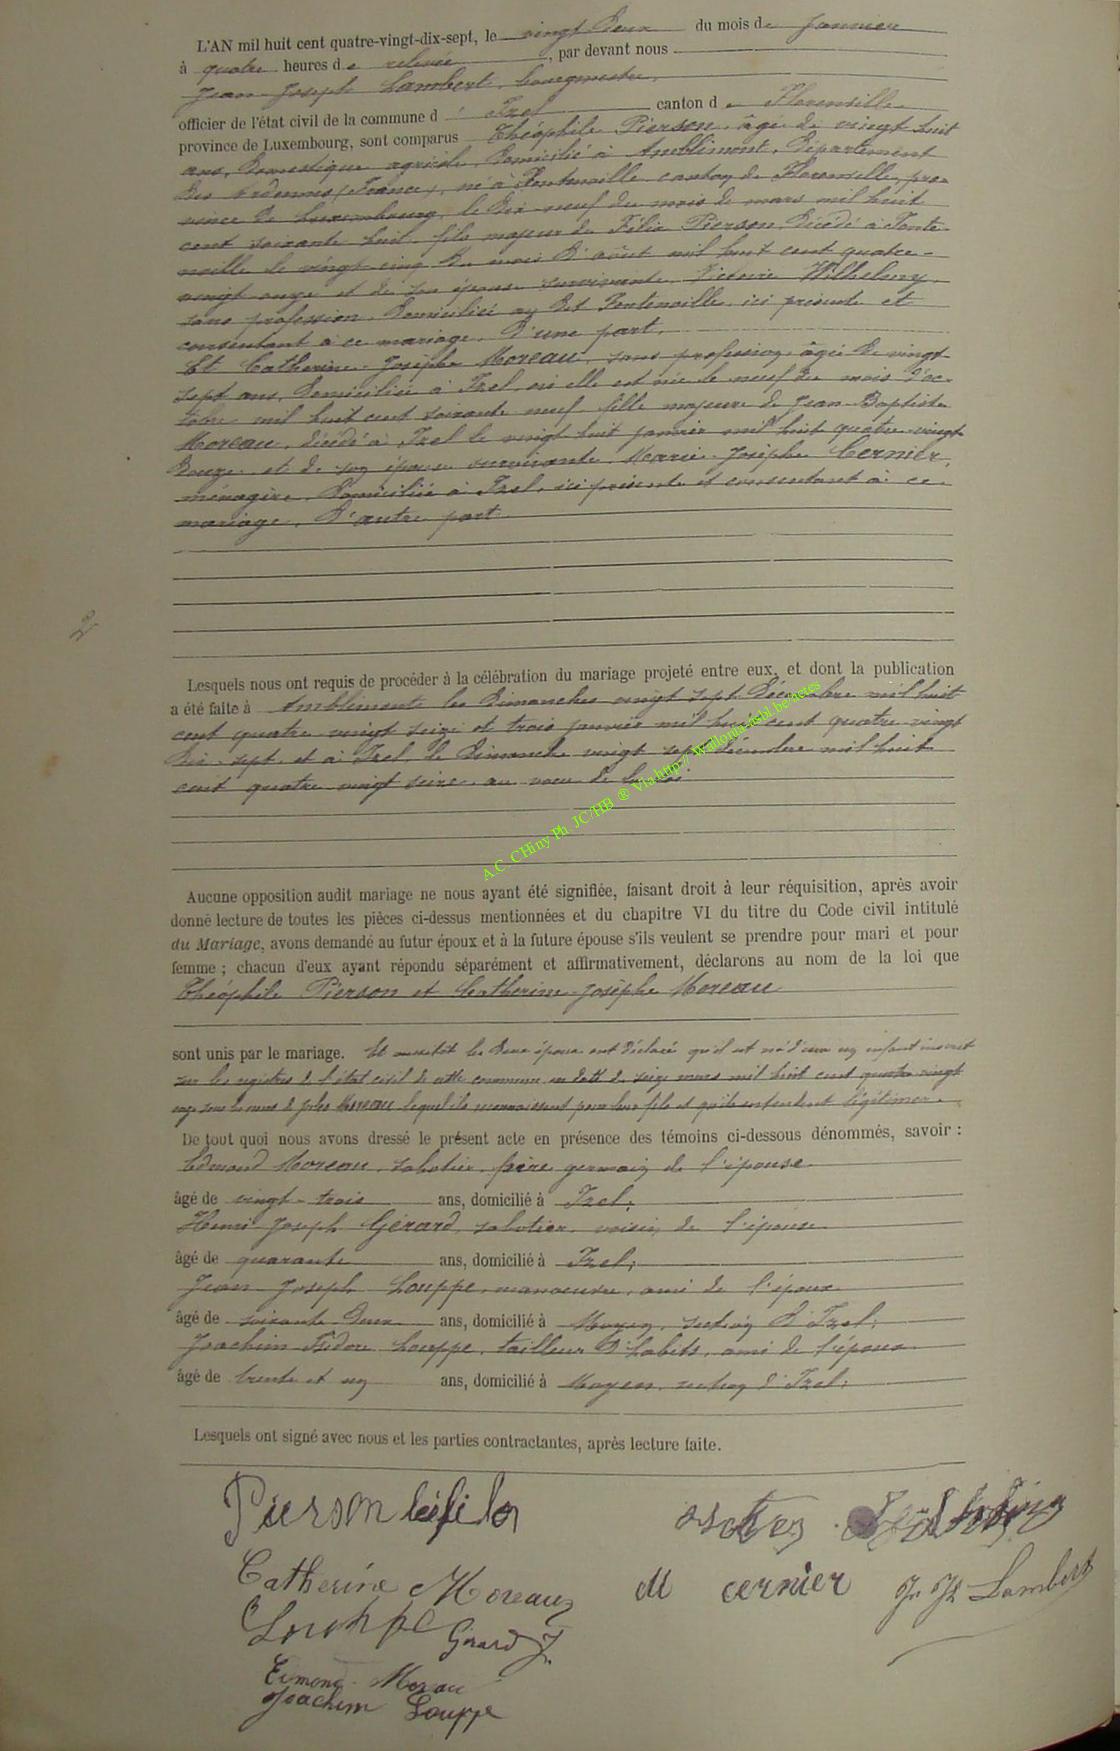 L'AN mil huit cent quatre-vingt-dix-sept, le vingt deux du mois de Janvier
à quatre heures de relevée, par devant nous
Jean-Joseph Lambert, bourgmestre,
officier de l'état civil de la commune d' Izel canton de Florenville
province de Luxembourg, sont comparus Théophile Pierson, âgé de vingt huit
ans, domestique agricole, domicilié à Amblimont, Département
des Ardennes (France), né à Fontenoille canton de Florenville, pro-
vince de Luxembourg, le dix-neuf du mois de mars mil huit
cent soixante huit, fils majeur de Félix Pierson, décédé à Fonte-
noille le vingt-cinq du mois d'août mil huit cent quatre-
vingt onze et de son épouse survivante, Victoire Wilhelmy,
sans profession, domiciliée au dit Fontenoille, ici présente et
consentant à ce mariage, d'une part.
Et Catherine-Josèphe Moreau, sans profession, âgée de vingt
sept ans, domiciliée à Izel, où elle est née le neuf du mois d'oc-
tobre mil huit cent soixante neuf, fille majeure de Jean-Baptiste
Moreau, décédé à Izel le vingt huit janvier mil huit quatre-vingt
douze et de son épouse survivante, Marie-Josèphe Cernier,
ménagère, domiciliée à Izel, ici présente et consentant à ce
mariage, d'autre part
Lesquels nous ont requis de procéder à la célébration du mariage projeté entre eux, et dont la publication
a été faite à Amblimont les Dimanches vingt sept Décembre mil huit
cent quatre vingt seize et trois janvier mil huit cent quatre vingt
dix-sept et à Izel, le Dimanche vingt sept décembre mil huit
cent quatre vingt seize, au voeu de la loi.
A.C. CHiny Ph JC/HB ® Via http://Wallonia-asbl.be/actes
Aucune opposition audit mariage ne nous ayant été signifiée, faisant droit à leur réquisition, après avoir
donné lecture de toutes les pièces ci-dessus mentionnées et du chapitre VI du titre du Code civil intitulé
du Mariage, avons demandé au futur époux et à la future épouse s'ils veulent se prendre pour mari et pour
femme ; chacun d'eux ayant répondu séparément et affirmativement, déclarons au nom de la loi que
Théophile Pierson et Catherine-Josèphe Moreau
sont unis par le mariage. Et aussitôt les deux époux ont déclaré qu'il est né d'eux un enfant inscrit
sur les registres de l'état civil de cette commune en date du seize mars mil huit cent quatre vingt
onze sous le nom de Jules Moreau lequel ils reconnaissent pour leur fils et qu'ils entendent légitimer.
De tout quoi nous avons dressé le présent acte en présence des témoins ci-dessous dénommés, savoir :
Edmond Moreau, sabotier, frère germain de l'épouse
âgé de vingt-trois ans, domicilié à Izel;
Henri Joseph Gérard, sabotier, voisin de l'épouse
âgé de quarante ans, domicilié à Izel;
Jean Joseph Louppe, manoeuvre, ami de l'époux
âgé de soixante deux ans, domicilié à Moyen, section d'Izel;
Joachim-Isidore Louppe, tailleur d'habits, ami de l'époux
âgé de trente et un ans, domicilié à Moyen, section d'Izel;
Lesquels ont signé avec nous et les parties contractantes, après lecture faite.
Pierson
Catherine Moreau
M cernier J. Jh Lambert
Louppe Gérard J.
Edmond Moreau
Joachim Louppe